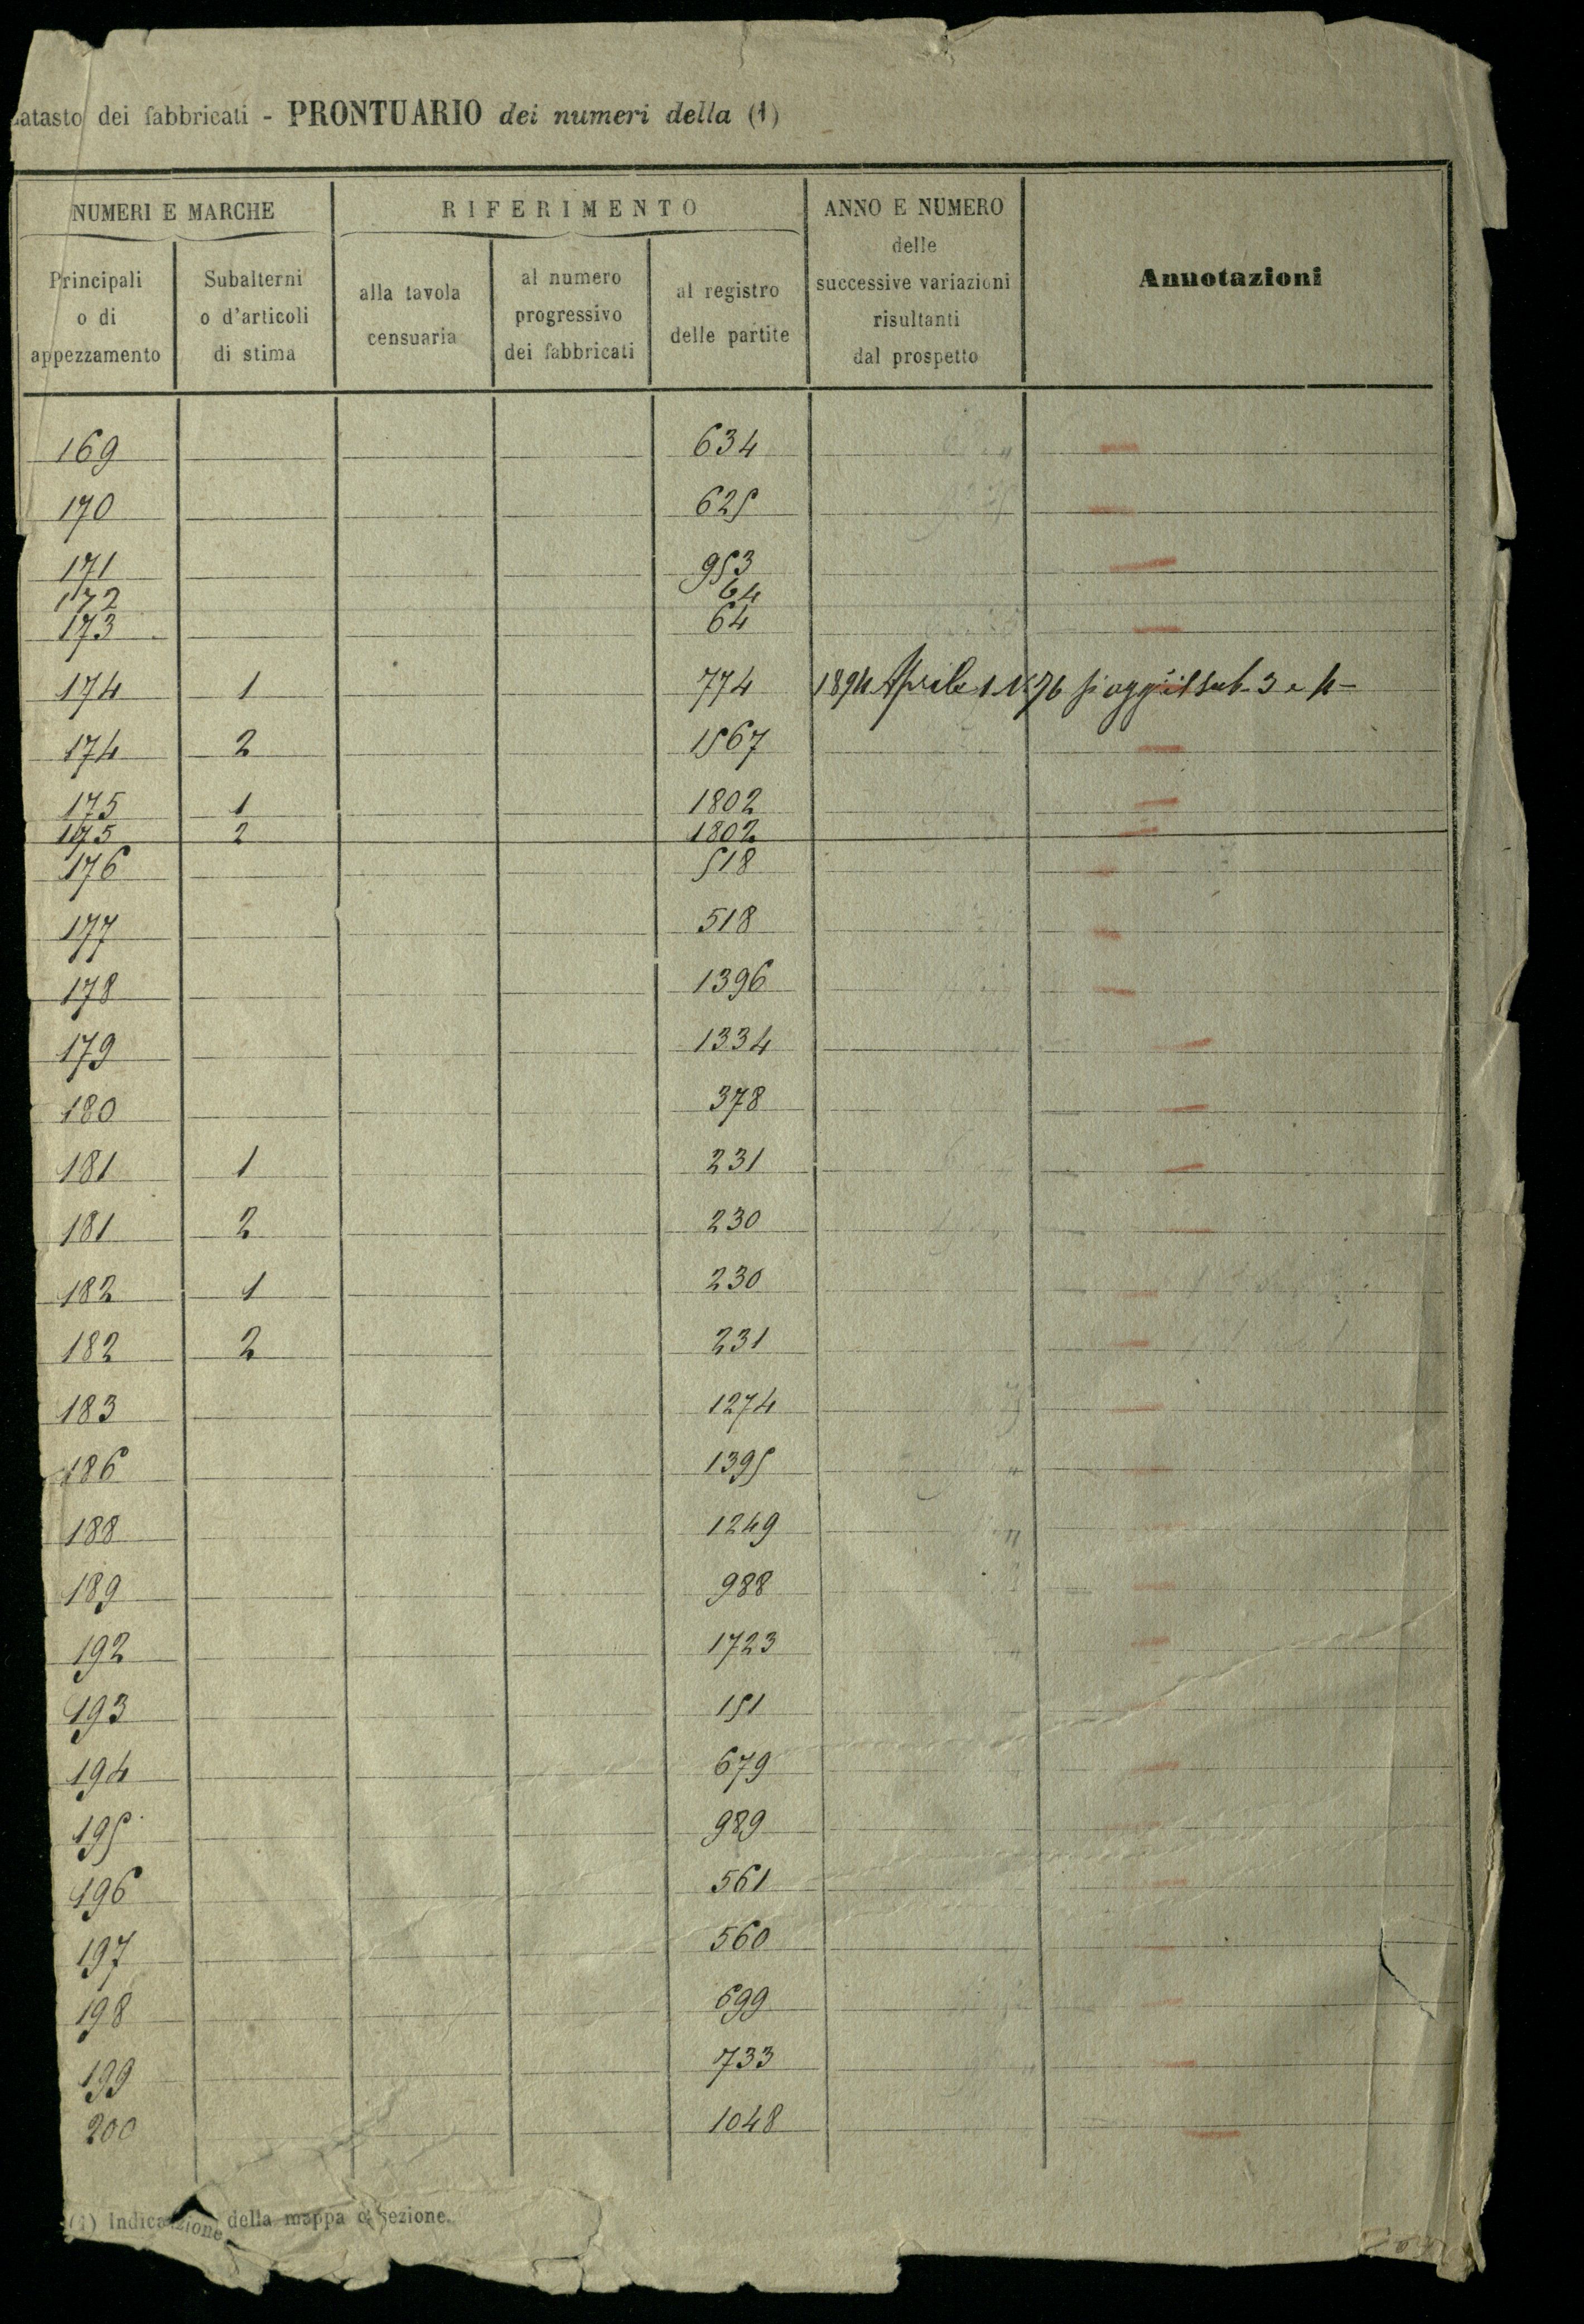 atasto dei fabbricati - PRONTUARIO dei numeri della (1)
NUMERI E MARCHE
RIFERIMENTO
ANNO E NUMERO
delle
successive variazioni
risultanti
dal prospetto
Annotazioni
Principali
o di
appezzamento
Subalterni
o d'articoli
di stima
alla tavola
censuaria
al numero
progressivo
dei fabbricati
al registro
delle partite
169 634
170 625
171 953
172 64
173 64
174 1 774 1894 Aprile 1 N. 76 si agg il sub 3 e 4
174 2 1567
175 1 1802
175 2 1802
176 518
177 518
178 1396
179 1334
180 378
181 1 231
181 2 230
182 1 230
182 2 231
183 1274
186 1395
188 1249
189 988
192 1723
193 151
194 679
195 989
196 561
197 560
198 699
199 733
200 1048
(1) Indicazione della mappa o sezione.